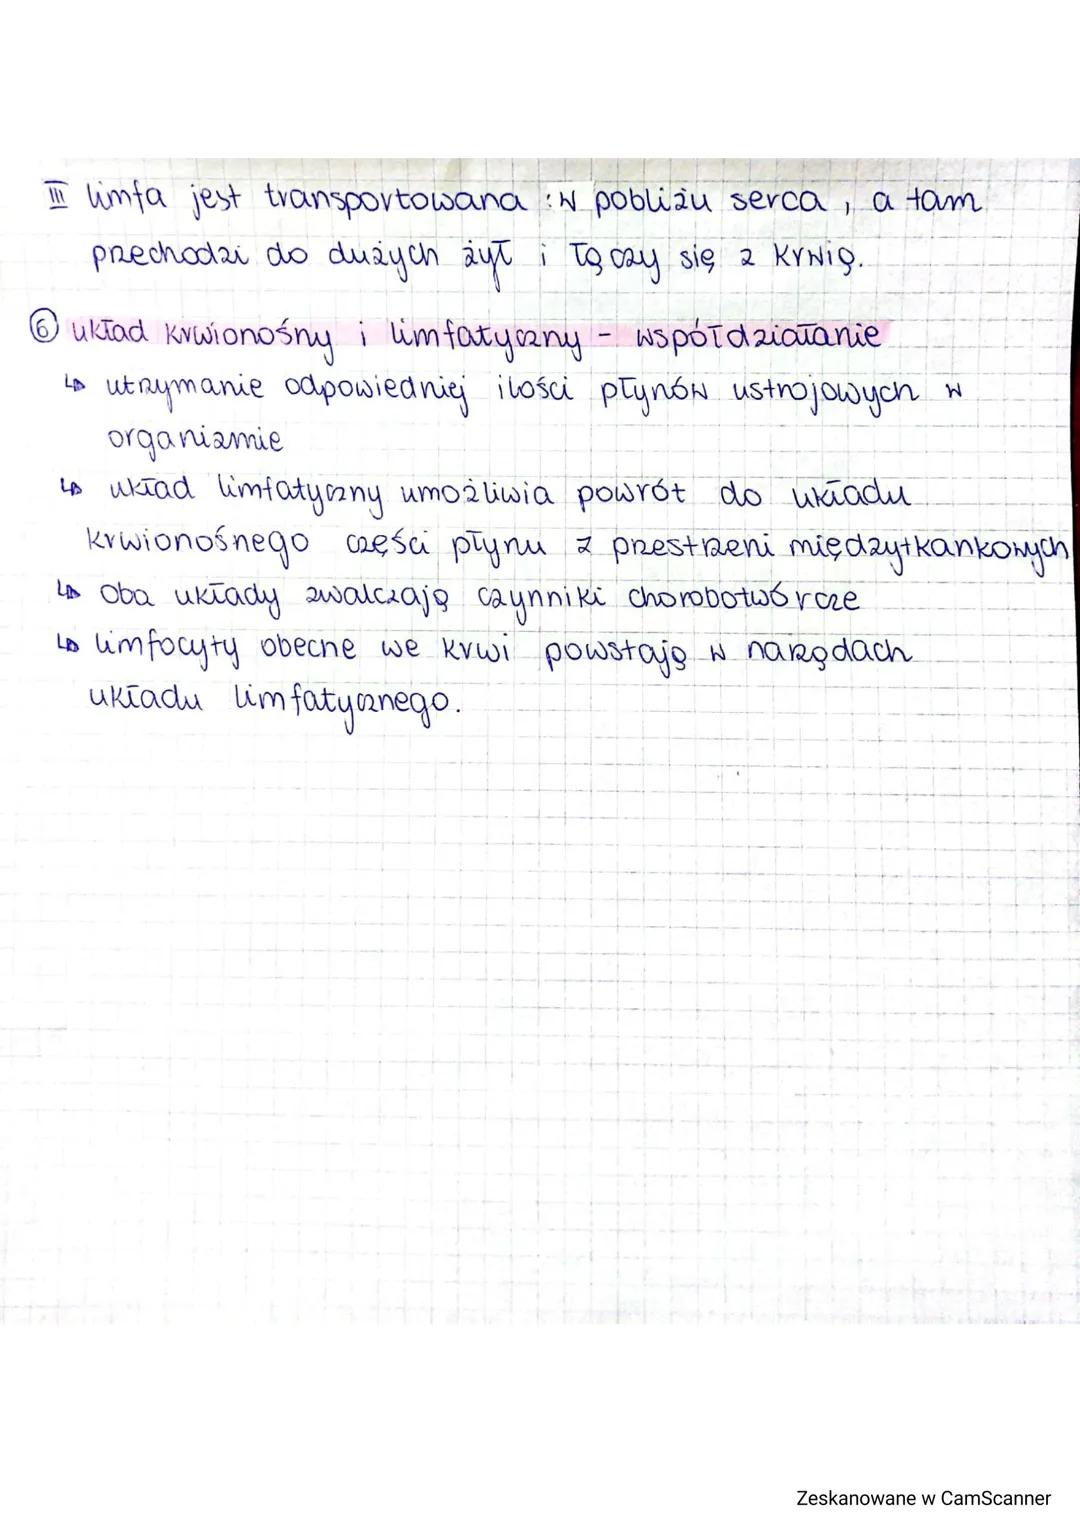 III limfa jest transportowana : w pobliżu serca, a tam
przechodzi do dużych żył i łączy się z krwią.
6 układ krwionośny i limfatyczny - współdziałanie
↳ utrzymanie odpowiedniej ilości płynów ustrojowych w
organizmie
↳ układ limfatyczny umożliwia powrót do układu
krwionośnego części płynu z przestrzeni międzytkankowych
↳ Oba układy zwalczają czynniki chorobotwórcze
↳ limfocyty obecne we krwi powstają w narządach
układu limfatycznego.
Zeskanowane w CamScanner